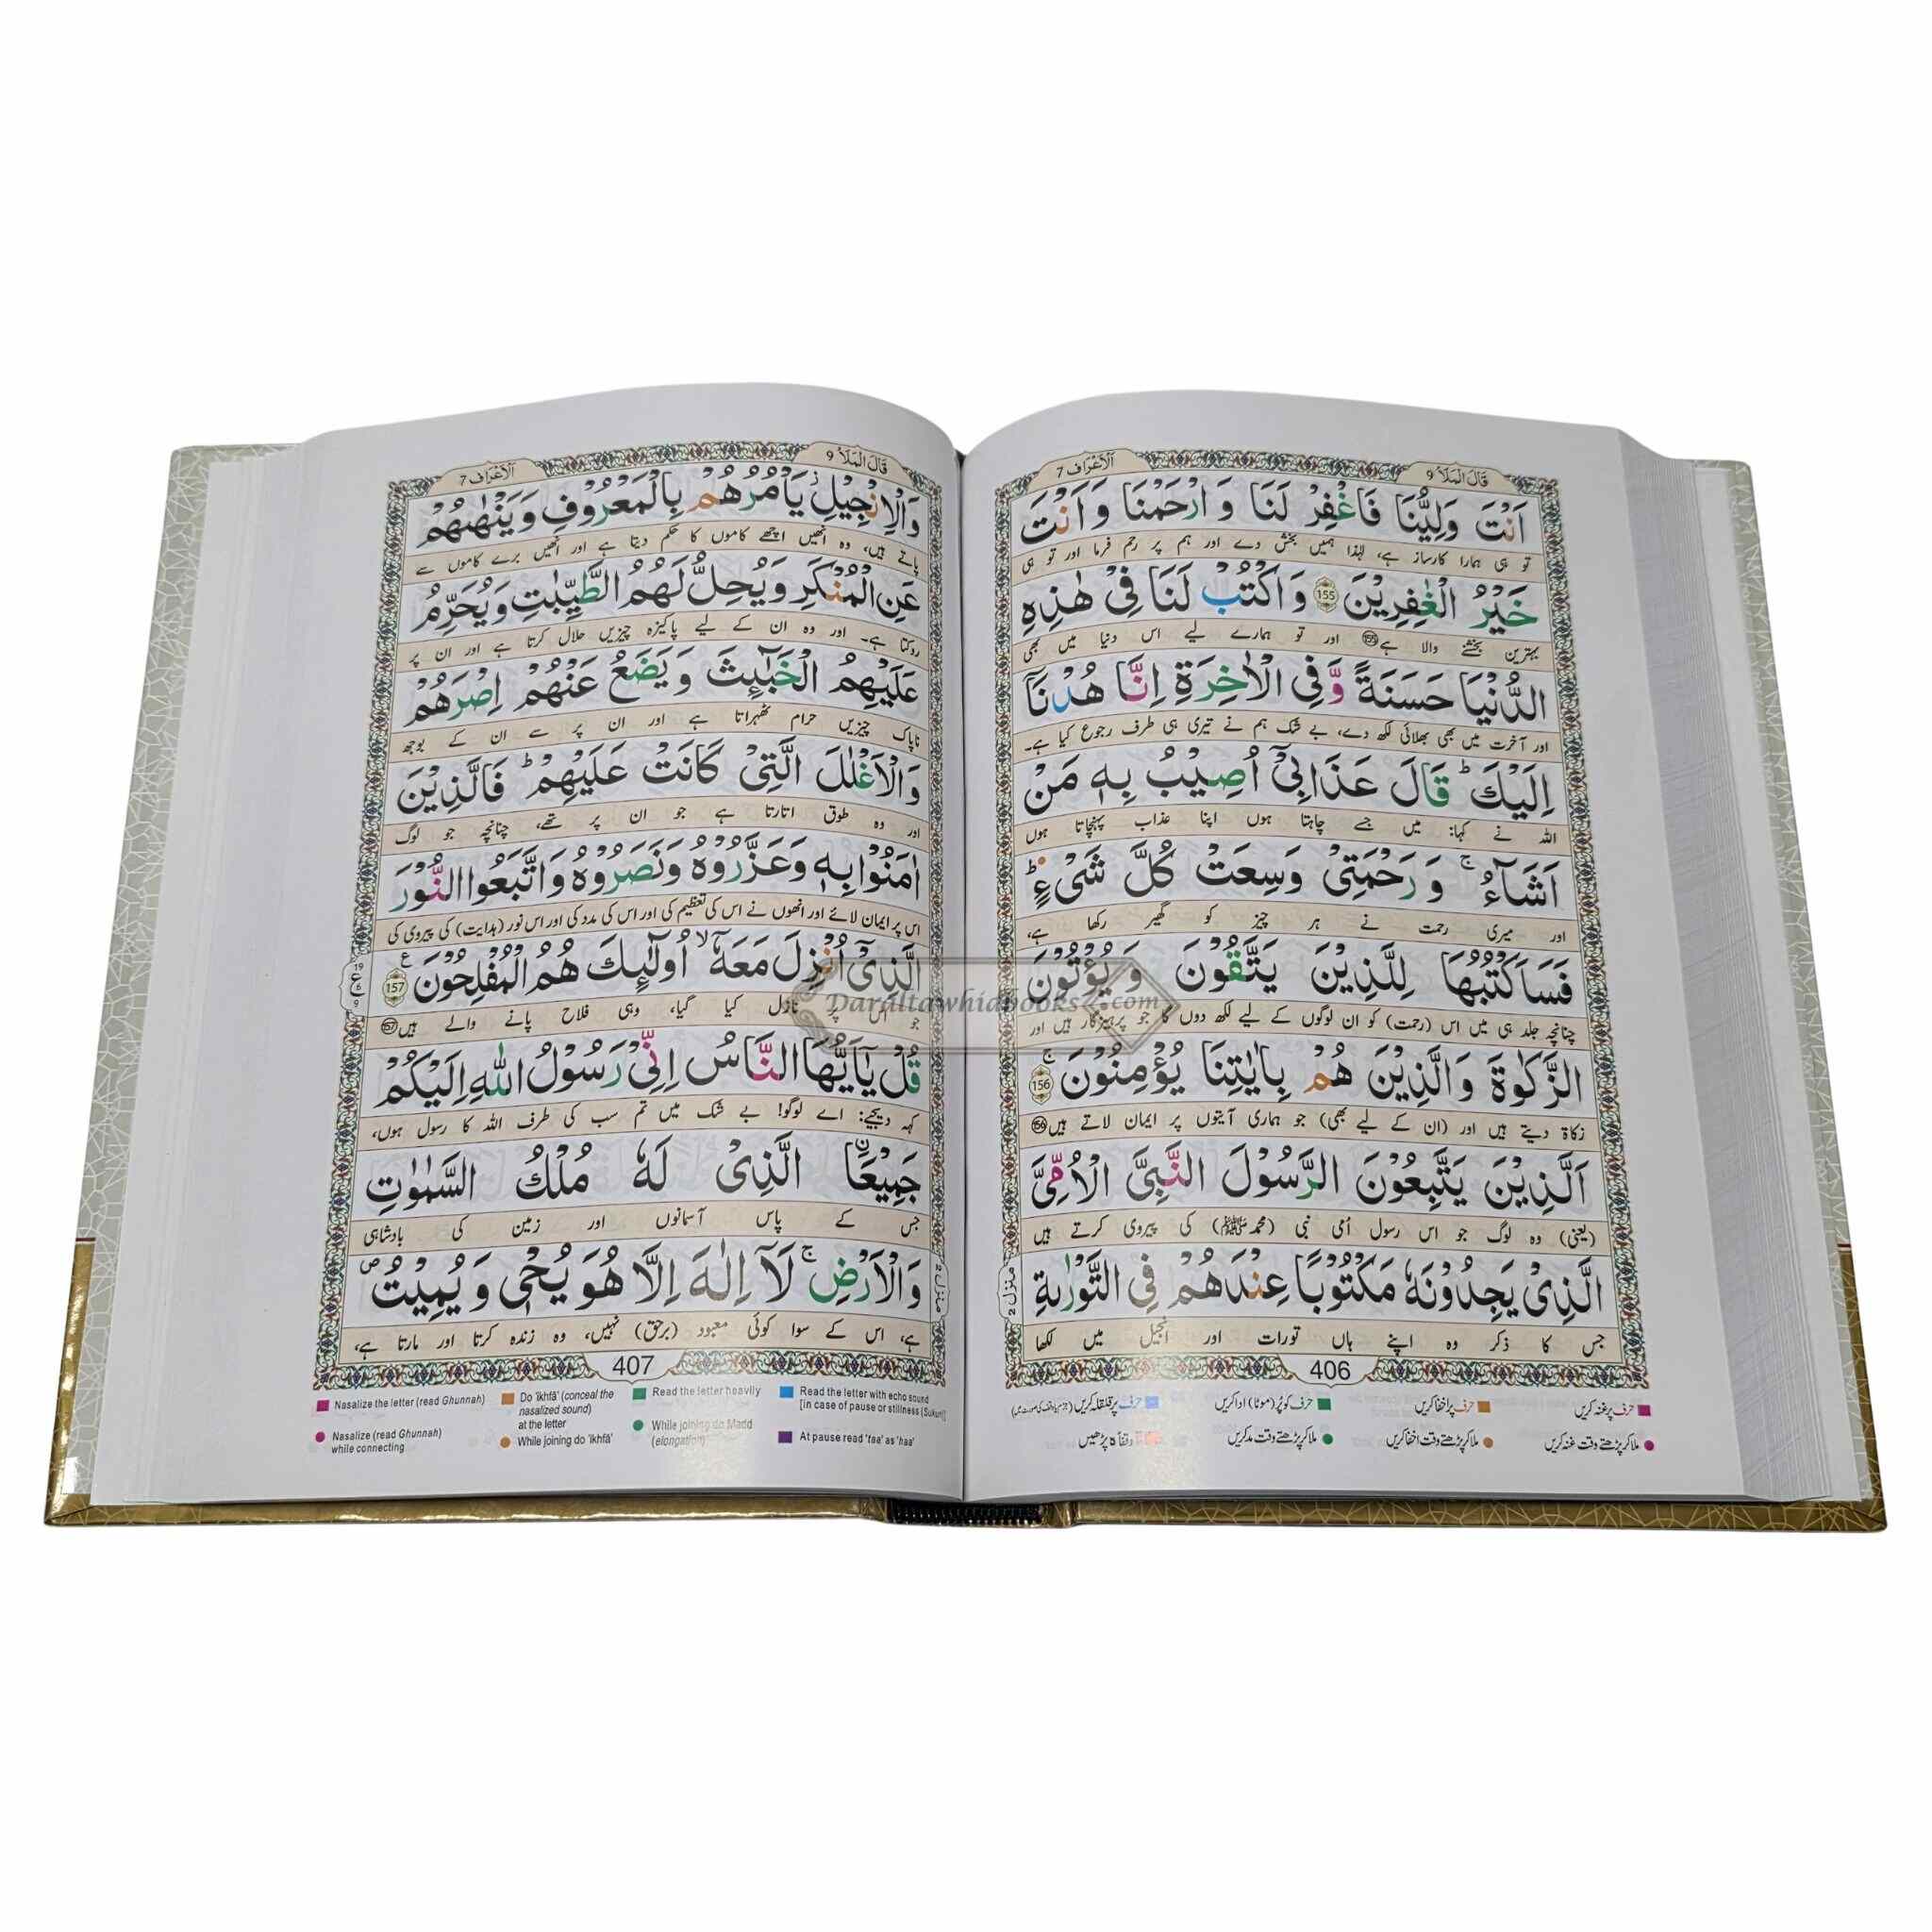 قَالَ الْمَلَاُ 9
اَلْاَعْرَاف 7
اَنْتَ وَلِيُّنَا فَاغْفِرْ لَنَا وَ ارْحَمْنَا وَ اَنْتَ
تو ہی ہمارا کارساز ہے، لہٰذا ہمیں بخش دے اور ہم پر رحم فرما اور تو ہی
خَيْرُ الْغٰفِرِيْنَ 155 وَ اكْتُبْ لَنَا فِيْ هٰذِهِ
بہترین بخشنے والا ہے 155 اور تو ہمارے لیے اس دنیا میں بھی
الدُّنْيَا حَسَنَةً وَّ فِي الْاٰخِرَةِ اِنَّا هُدْنَاۤ
اور آخرت میں بھی بھلائی لکھ دے، بے شک ہم نے تیری ہی طرف رجوع کیا ہے۔
اِلَيْكَ ؕ قَالَ عَذَابِيْۤ اُصِيْبُ بِهٖ مَنْ
اللہ نے کہا: میں جسے چاہتا ہوں اپنا عذاب پہنچاتا ہوں
اَشَآءُ ۚ وَ رَحْمَتِيْ وَسِعَتْ كُلَّ شَيْءٍ ؕ
اور میری رحمت نے ہر چیز کو گھیر رکھا ہے،
فَسَاَكْتُبُهَا لِلَّذِيْنَ يَتَّقُوْنَ وَ يُؤْتُوْنَ
چنانچہ جلد ہی میں اس (رحمت) کو ان لوگوں کے لیے لکھ دوں گا جو پرہیزگار ہیں اور
الزَّكٰوةَ وَ الَّذِيْنَ هُمْ بِاٰيٰتِنَا يُؤْمِنُوْنَ ۚ 156
زکاۃ دیتے ہیں اور (ان کے لیے بھی) جو ہماری آیتوں پر ایمان لاتے ہیں 156
اَلَّذِيْنَ يَتَّبِعُوْنَ الرَّسُوْلَ النَّبِيَّ الْاُمِّيَّ
(یعنی) وہ لوگ جو اس رسول اُمی نبی (محمد ﷺ) کی پیروی کرتے ہیں
الَّذِيْ يَجِدُوْنَهٗ مَكْتُوْبًا عِنْدَهُمْ فِي التَّوْرٰىةِ
جس کا ذکر وہ اپنے ہاں تورات اور انجیل میں لکھا
منزل 2
406
حرف پر غنہ کریں
حرف پر اخفا کریں
حرف کو پُر (موٹا) ادا کریں
حرف پر قلقلہ کریں
ملا کر پڑھتے وقت غنہ کریں
ملا کر پڑھتے وقت اخفا کریں
ملا کر پڑھتے وقت مد کریں
وقفاً ہ پڑھیں
قَالَ الْمَلَاُ 9
اَلْاَعْرَاف 7
وَ الْاِنْجِيْلِ يَاْمُرُهُمْ بِالْمَعْرُوْفِ وَ يَنْهٰىهُمْ
پاتے ہیں، وہ انھیں اچھے کاموں کا حکم دیتا ہے اور انھیں برے کاموں سے
عَنِ الْمُنْكَرِ وَ يُحِلُّ لَهُمُ الطَّيِّبٰتِ وَ يُحَرِّمُ
روکتا ہے۔ اور وہ ان کے لیے پاکیزہ چیزیں حلال کرتا ہے اور ان پر
عَلَيْهِمُ الْخَبٰٓىِٕثَ وَ يَضَعُ عَنْهُمْ اِصْرَهُمْ
ناپاک چیزیں حرام ٹھہراتا ہے اور ان پر سے ان کے بوجھ
وَ الْاَغْلٰلَ الَّتِيْ كَانَتْ عَلَيْهِمْ ؕ فَالَّذِيْنَ
اور وہ طوق اتارتا ہے جو ان پر تھے، چنانچہ جو لوگ
اٰمَنُوْا بِهٖ وَ عَزَّرُوْهُ وَ نَصَرُوْهُ وَ اتَّبَعُوا النُّوْرَ
اس پر ایمان لائے اور انھوں نے اس کی تعظیم کی اور اس کی مدد کی اور اس نور (ہدایت) کی پیروی کی
الَّذِيْۤ اُنْزِلَ مَعَهٗۤ ۙ اُولٰٓىِٕكَ هُمُ الْمُفْلِحُوْنَ 157
19
ع
6
9
جو اس پر نازل کیا گیا، وہی فلاح پانے والے ہیں 157
قُلْ يٰۤاَيُّهَا النَّاسُ اِنِّيْ رَسُوْلُ اللّٰهِ اِلَيْكُمْ
کہہ دیجیے: اے لوگو! بے شک میں تم سب کی طرف اللہ کا رسول ہوں،
جَمِيْعَا ۟ الَّذِيْ لَهٗ مُلْكُ السَّمٰوٰتِ
جس کے پاس آسمانوں اور زمین کی بادشاہی
وَ الْاَرْضِ ۚ لَاۤ اِلٰهَ اِلَّا هُوَ يُحْيٖ وَ يُمِيْتُ ۪
ہے، اس کے سوا کوئی معبود (برحق) نہیں، وہ زندہ کرتا اور مارتا ہے،
منزل 2
407
Nasalize the letter (read Ghunnah)
Nasalize (read Ghunnah)
while connecting
Do 'ikhfā' (conceal the
nasalized sound)
at the letter
While joining do 'ikhfā'
Read the letter heavily
While joining do Madd
(elongation)
Read the letter with echo sound
[in case of pause or stillness (Sukun)]
At pause read 'taa' as 'haa'
Daraltawhidbooks.com